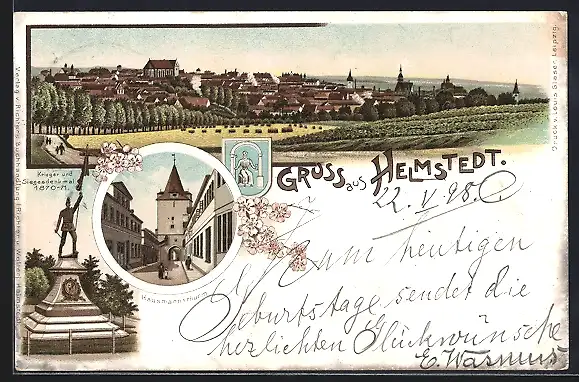 GRUSS aus HELMSTEDT.
22. V. 98.
Krieger und
Siegesdenkmal
1870-71.
Hausmannsthurm
Zum heutigen
Geburtstage sendet die
herzlichsten Glückwünsche
E. Wasmus
Druck v. Louis Glaser, Leipzig.
Verlag v. Richters Buchhandlung